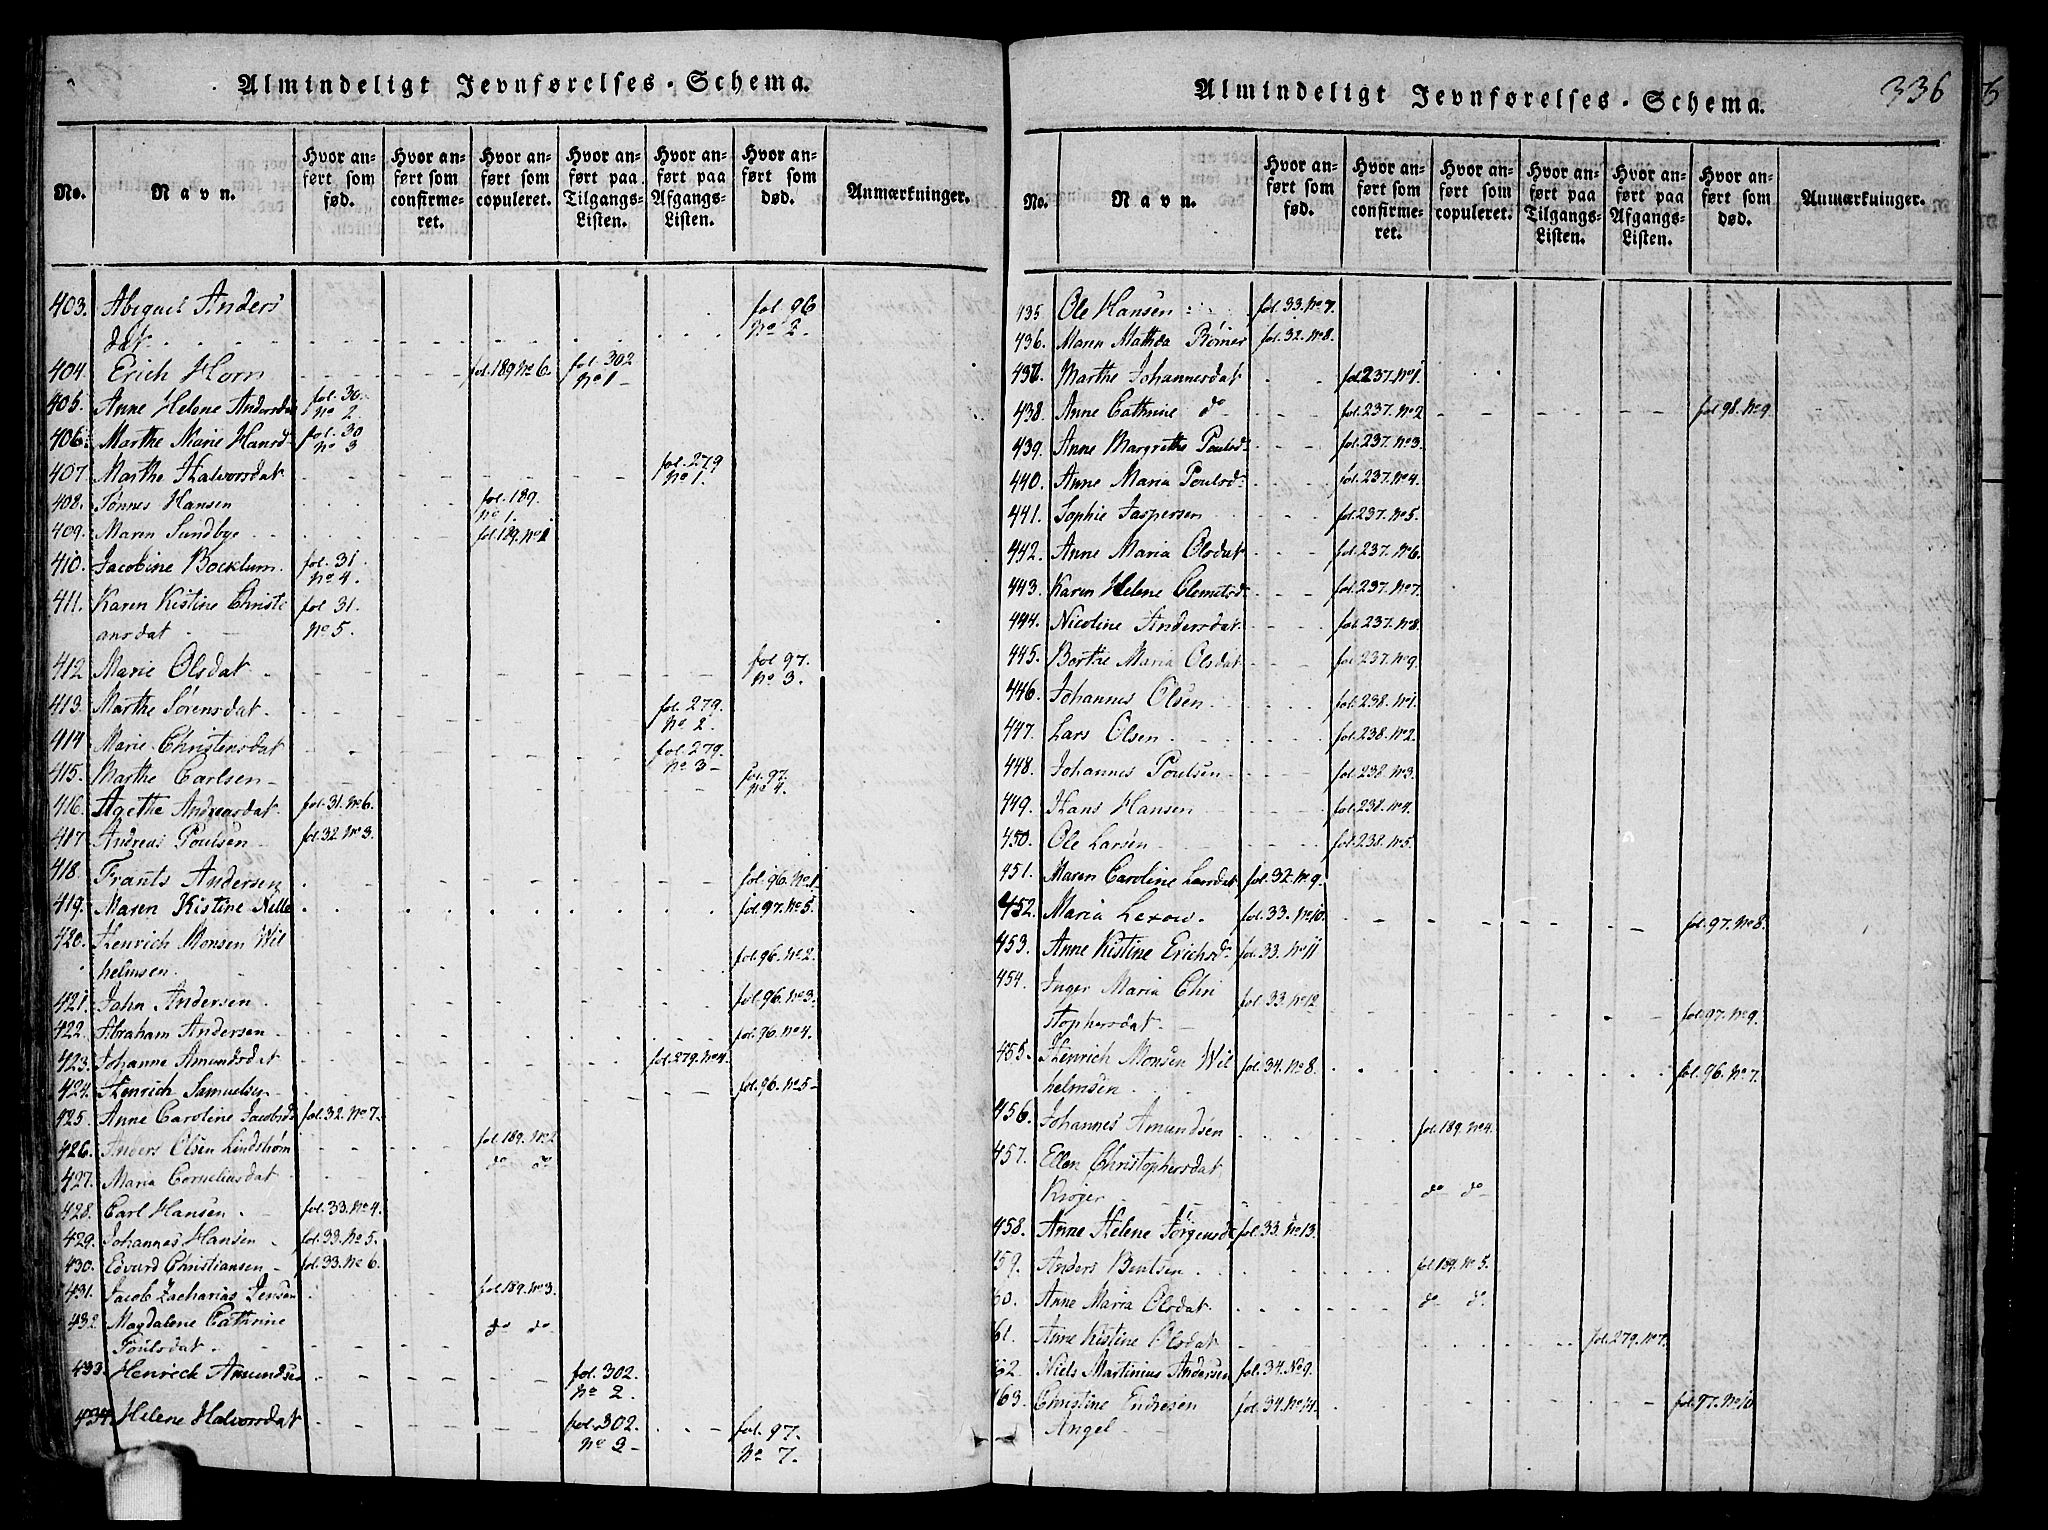 Almindeligt Jevnførelses-Schema.
No. Navn. Hvor anført som fød. Hvor anført som confirmeret. Hvor anført som copuleret. Hvor anført paa Tilgangs-Listen. Hvor anført paa Afgangs-Listen. Hvor anført som død. Anmærkninger.
403. Abigael Anders fol 96
dat No 2.
404. Erich Horn fol. 189 No 6. fol. 302 No 1
405. Anne Helene Andersdat fol. 30. No 2.
406. Marthe Marie Hansd fol. 30 No 3
407. Marthe Halvorsdat fol. 279 No 1.
408. Tønnes Hansen fol. 189. No 1.
409. Maren Sundbye fol. 189. No 1
410. Jacobine Bocklum fol. 31 No 4.
411. Karen Kistine Christi fol 31.
ansdat No 5.
412 Marie Olsdat fol 97. No 3.
413. Marthe Sørensdat. fol. 279. No 2.
414 Marie Christensdat fol. 279. No 3
415. Marthe Carlsen fol. 97. No 4.
416. Agethe Andreasdat. fol. 31. No 6.
417. Andreas Poulsen fol. 32 No 3.
418. Frants Andersen fol. 96. No 1
419. Maren Kistine Nille fol. 97. No 5.
420. Henrich Monsen Wil
helmsen. fol. 96. No 2.
421. John Andersen. fol. 96. No 3.
422. Abraham Andersen fol. 96. No 4.
423. Johanne Amundsdat fol. 279. No 4.
424. Henrich Samuelsen fol. 96. No 5
425. Anne Caroline Jacobsd fol. 32. No 7.
426. Anders Olsen Lindstrøm fol. 189. No 2
427. Maria Corneliusdat do do
428. Carl Hansen. fol. 33. No 4.
429. Johannes Hansen fol. 33. No 5.
430. Edvard Christiansen fol. 33. No 6.
431. Jacob Zacharias Jensen fol. 189. No 3.
432. Magdalene Cathrine do do
Poulsdat.
433. Henrick Amundsen fol. 302. No 2.
434. Helene Halvorsdat fol. 302. No 3 fol. 97. No 7.
Almindeligt Jevnførelses-Schema. 336
No. Navn. Hvor anført som fød. Hvor anført som confirmeret. Hvor anført som copuleret. Hvor anført paa Tilgangs-Listen. Hvor anført paa Afgangs-Listen. Hvor anført som død. Anmærkninger.
435 Ole Hansen fol. 33. No 7.
436. Maren Mathea Rømer fol. 32. No 8.
437. Marthe Johannesdat fol. 237. No 1.
438. Anne Cathrine do fol. 237. No 2 fol. 98. No 9.
439. Anne Margrethe Poulsd fol. 237. No 3.
440. Anne Maria Poulsd fol. 237. No 4.
441. Sophie Jaspersen fol. 237. No 5.
442. Anne Maria Olsdat fol. 237. No 6.
443. Karen Helene Clemetsd fol. 237. No 7.
444. Nicoline Andersdat. fol. 237. No 8.
445. Borthe Maria Olsdat fol. 237. No 9.
446. Johannes Olsen fol. 238. No 1.
447. Lars Olsen fol. 238. No 2.
448. Johannes Poulsen fol. 238. No 3.
449. Hans Hansen fol. 238. No 4.
450. Ole Larsen fol. 238. No 5.
451. Maren Caroline Larsdat fol. 32. No 9.
452. Maria Lexow. fol. 33. No 10. fol. 97. No 8.
453. Anne Kistine Erichsd fol. 33. No 11
454. Inger Maria Chri fol. 33. No 12
stophersdat. fol. 97. No 9.
455. Henrich Monsen Wil fol. 34. No 8. fol. 96. No 7.
helmsen.
456. Johannes Amundsen fol. 189. No 4.
457. Ellen Christophersdat
Krøjer do do
458. Anne Helene Jørgensd fol. 33. No 13.
459. Anders Bentsen. fol 189. No 5.
60. Anne Maria Olsdat do do.
61. Anne Kistine Olsdat fol. 279. No 7.
62. Niels Martinius Andersen fol. 34. No 9.
463. Christine Endresen fol. 34. No 14. fol. 97. No 10
Angel